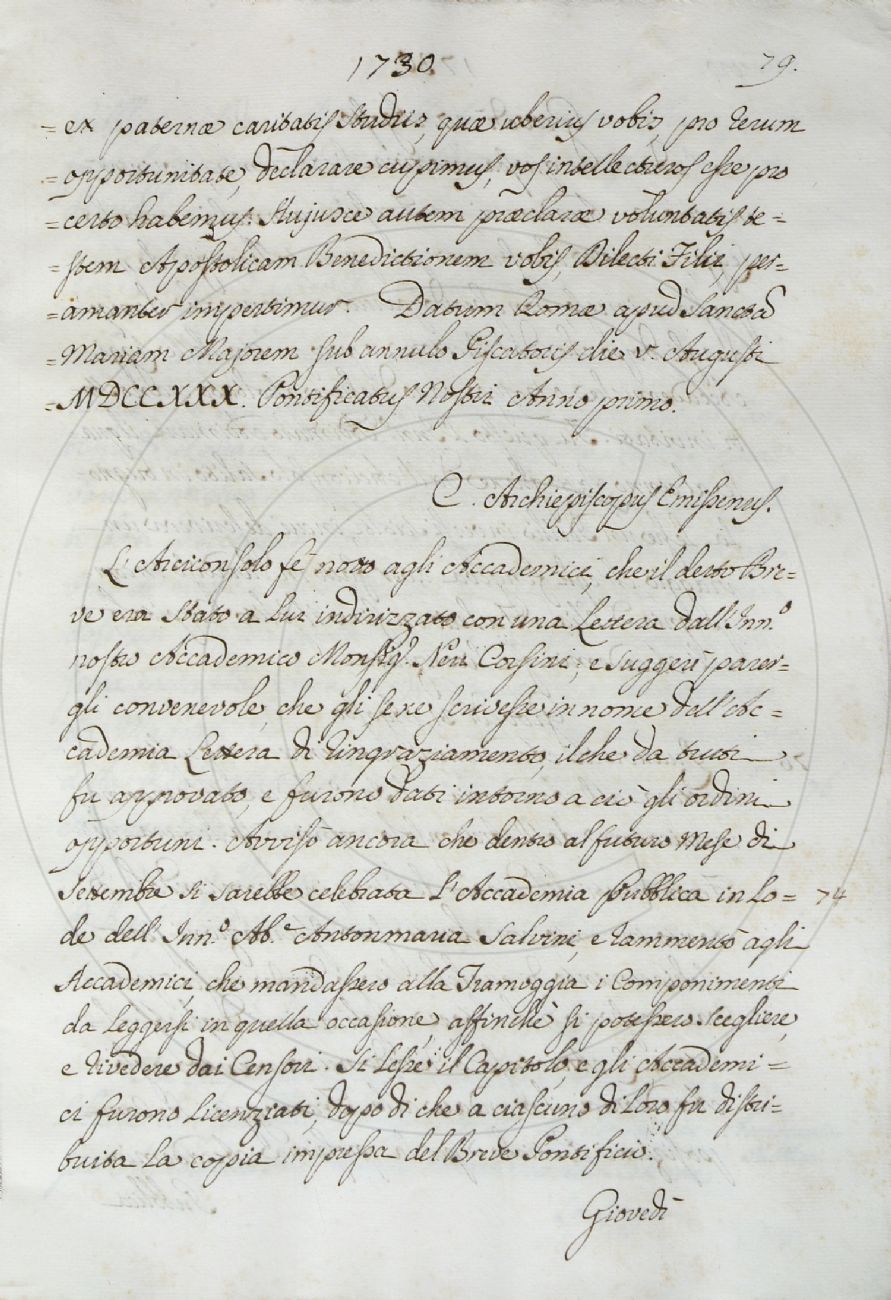 1730. 79.
= ex paternæ caritatis studiis, quæ uberius vobis, pro rerum
= opportunitate, declarare cupimus, vos intellecturos esse pro
= certo habemus. Hujusce autem præclaræ voluntatis te=
= stem Apostolicam Benedictionem vobis, Dilecti Filii, per=
= amanter impertimur. Datum Romæ apud Sanctā
= Mariam Majorem sub annulo Piscatoris die v. Augusti
= MDCCXXX. Pontificatus Nostri Anno primo.
C. Archiepiscopus Emissenus.
L'Arciconsolo fe' noto agli Accademici, che il detto Bre=
ve era stato a lui indirizzato con una Lettera dall'Inn.º
nostro Accademico Monsig.r Neri Corsini, e suggerì parer=
gli convenevole, che gli se ne scrivesse in nome dell'Ac=
cademia Lettera di ringraziamento, il che da tutti
fu approvato, e furono dati intorno a ciò gli ordini
opportuni. Avvisò ancora che dentro al futuro Mese di
Settembre si sarebbe celebrata l'Accademia pubblica in lo= 74
de dell'Inn.º Ab.e Antonmaria Salvini, e rammentò agli
Accademici, che mandassero alla Tramoggia i Componimenti
da leggersi in quella occasione, affinchè si potessero scegliere,
e rivedere dai Censori. Si lesse il Capitolo, e gli Accademi=
ci furono licenziati, dopo di che a ciascuno di loro fu distri=
buita la copia impressa del Breve Pontificio.
Giovedì